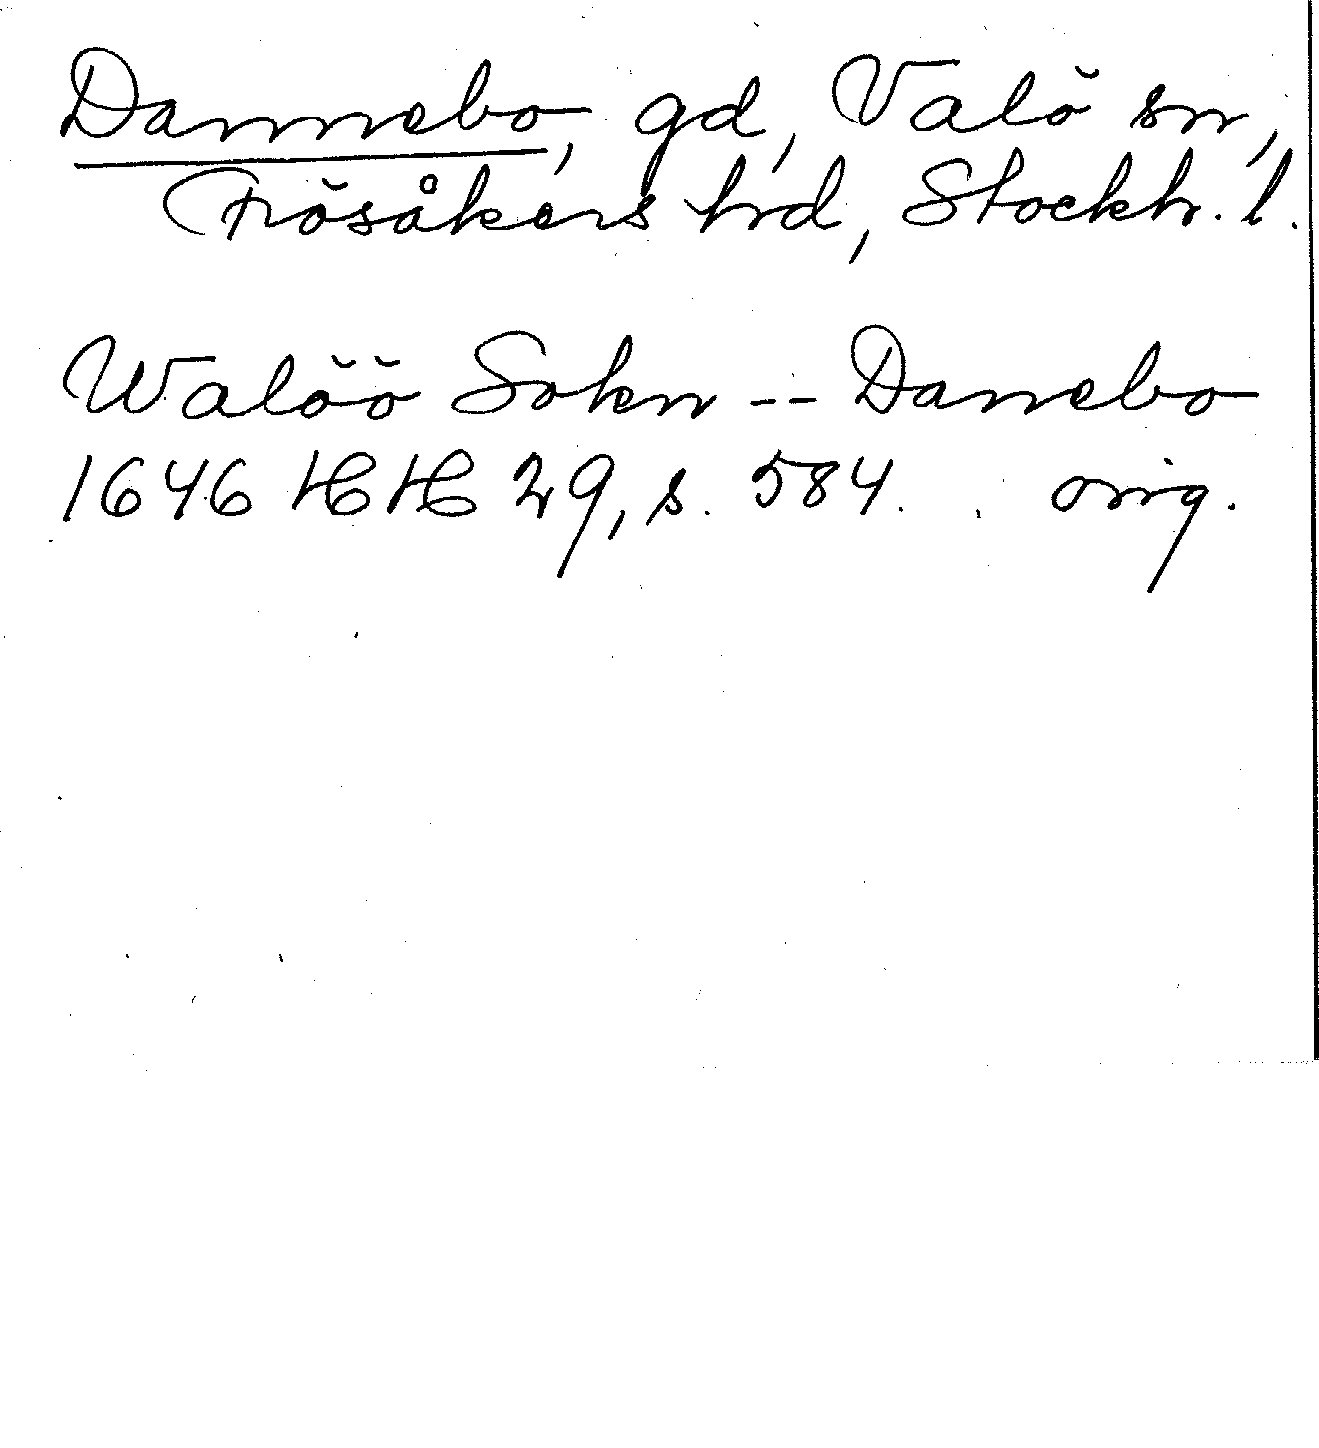 Dannebo, gd, Valö sn,
Frösåkers hrd, Stockh. l.
Walöö Sokn -- Danebo
1646 HH 29, s. 584. orig.